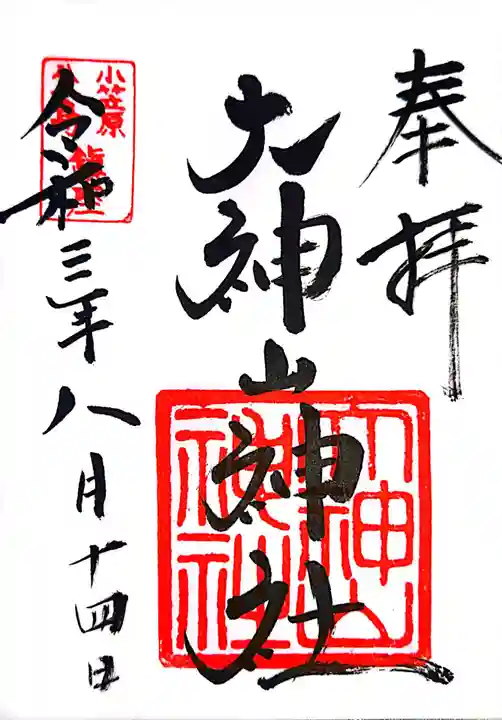 奉拝
大神山神社
令和三年八月十四日
小笠原